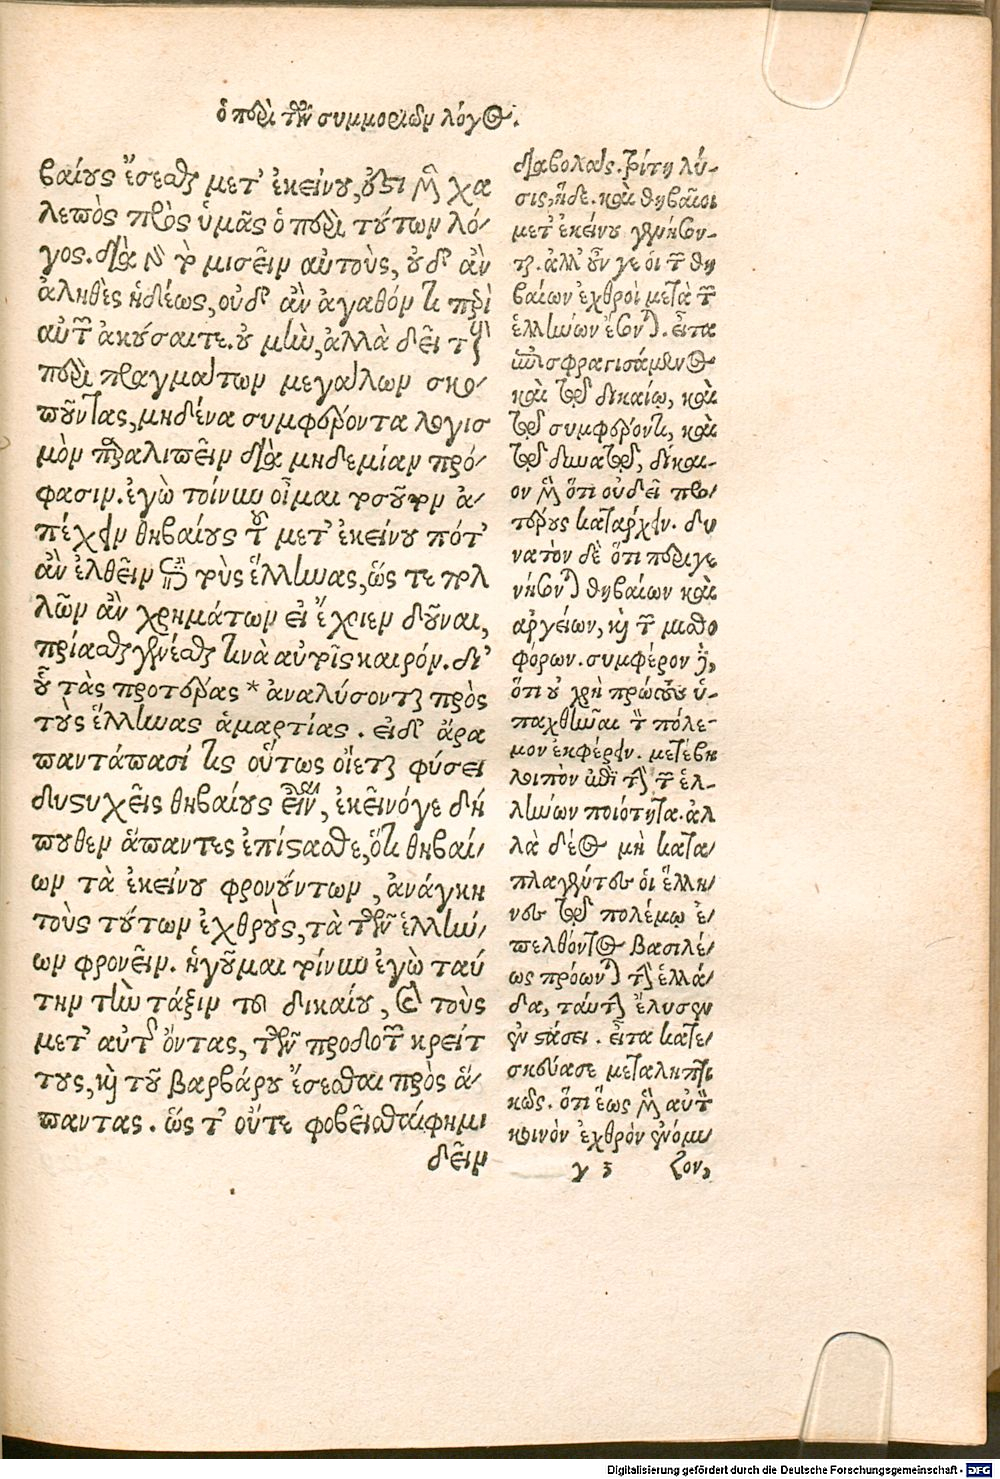 ὁ περὶ τῶν συμμοριῶν λόγος.
βαίους ἔσεσθαι μετ' ἐκείνου, ὅτι μὲν χα
λεπὸς πρὸς ὑμᾶς ὁ περὶ τούτων λό-
γος. διὰ γὰρ μισεῖν αὐτοὺς, οὐδ' ἂν
ἀληθὲς ἡδέως, οὐδ' ἂν ἀγαθόν τι περὶ
αὐτῶν ἀκούσαιτε. οὐ μὴν, ἀλλὰ δεῖ τοὺς
περὶ πραγμάτων μεγάλων σκο-
ποῦντας, μηδένα συμφέροντα λογισ
μὸν παραλιπεῖν διὰ μηδεμίαν πρό-
φασιν. ἐγὼ τοίνυν οἶμαι τοσοῦτον ἀ-
πέχειν θηβαίους τοῦ μετ' ἐκείνου πότ'
ἂν ἐλθεῖν ἐπὶ τοὺς ἕλληνας, ὥς τε πολ
λῶν ἂν χρημάτων εἰ ἔχοιεν δοῦναι,
πρίασθαι γενέσθαι τινὰ αὐτοῖς καιρόν. δι'
οὗ τὰς προτέρας * ἀναλύσονται πρὸς
τοὺς ἕλληνας ἁμαρτίας. εἰδ' ἄρα
παντάπασί τις οὕτως οἴεται φύσει
δυστυχεῖς θηβαίους εἶναι, ἐκεῖνόγε δή
πουθεν ἅπαντες ἐπίστασθε, ὅτι θηβαί-
ων τὰ ἐκείνου φρονούντων, ἀνάγκη
τοὺς τούτων ἐχθροὺς, τὰ τῶν ἑλλήν-
ων φρονεῖν. ἡγοῦμαι τοίνυν ἐγὼ ταύ
την τὴν τάξιν τοῦ δικαίου, καὶ τοὺς
μετ' αὐτοῦ ὄντας, τῶν προδοτῶν κρείτ
τους, καὶ τοῦ βαρβάρου ἔσεσθαι πρὸς ἅ-
παντας. ὥς τ' οὔτε φοβεῖσθαί φημι
δεῖν
διαβολαῖς. τρίτη λύ-
σις, ἥδε. καὶ θηβαῖοι
μετ' ἐκείνου γενήσον-
ται. ἀλλ' οὖν γε οἱ τῶν θη
βαίων ἐχθροὶ μετὰ τῶν
ἑλλήνων ἔσονται. εἶτα
ἐπισφραγισάμενος
καὶ τῷ δικαίῳ, καὶ
τῷ συμφέροντι, καὶ
τῷ δυνατῷ, δίκαι-
ον μὲν ὅτι οὐ δεῖ προ-
τέρους κατάρχειν. δυ
νατὸν δὲ ὅτι περιγε
νήσονται θηβαίων καὶ
ἀργείων, καὶ τῶν μισθο
φόρων. συμφέρον δὲ,
ὅτι οὐ χρὴ πρώτου ὑ-
παχθῆναι τὸν πόλε-
μον ἐκφέρειν. μετέβη
λοιπὸν ἐπὶ τὴν τῶν ἑλ-
λήνων ποιότητα. ἀλ
λὰ δέος μὴ κατα-
πλαγέντες οἱ ἕλλη-
νες τῷ πολέμῳ ἐ-
πελθόντος βασιλέ-
ως πρόωνται τὴν ἑλλά-
δα, ταύτην ἔλυσεν
ἐν στάσει. εἶτα κατε-
σκεύασε μεταληπτι
κῶς. ὅτι ἕως μὲν αὐτὸν
κοινὸν ἐχθρὸν ἐνόμι-
γ 3 ζον,
Digitalisierung gefördert durch die Deutsche Forschungsgemeinschaft - DFG